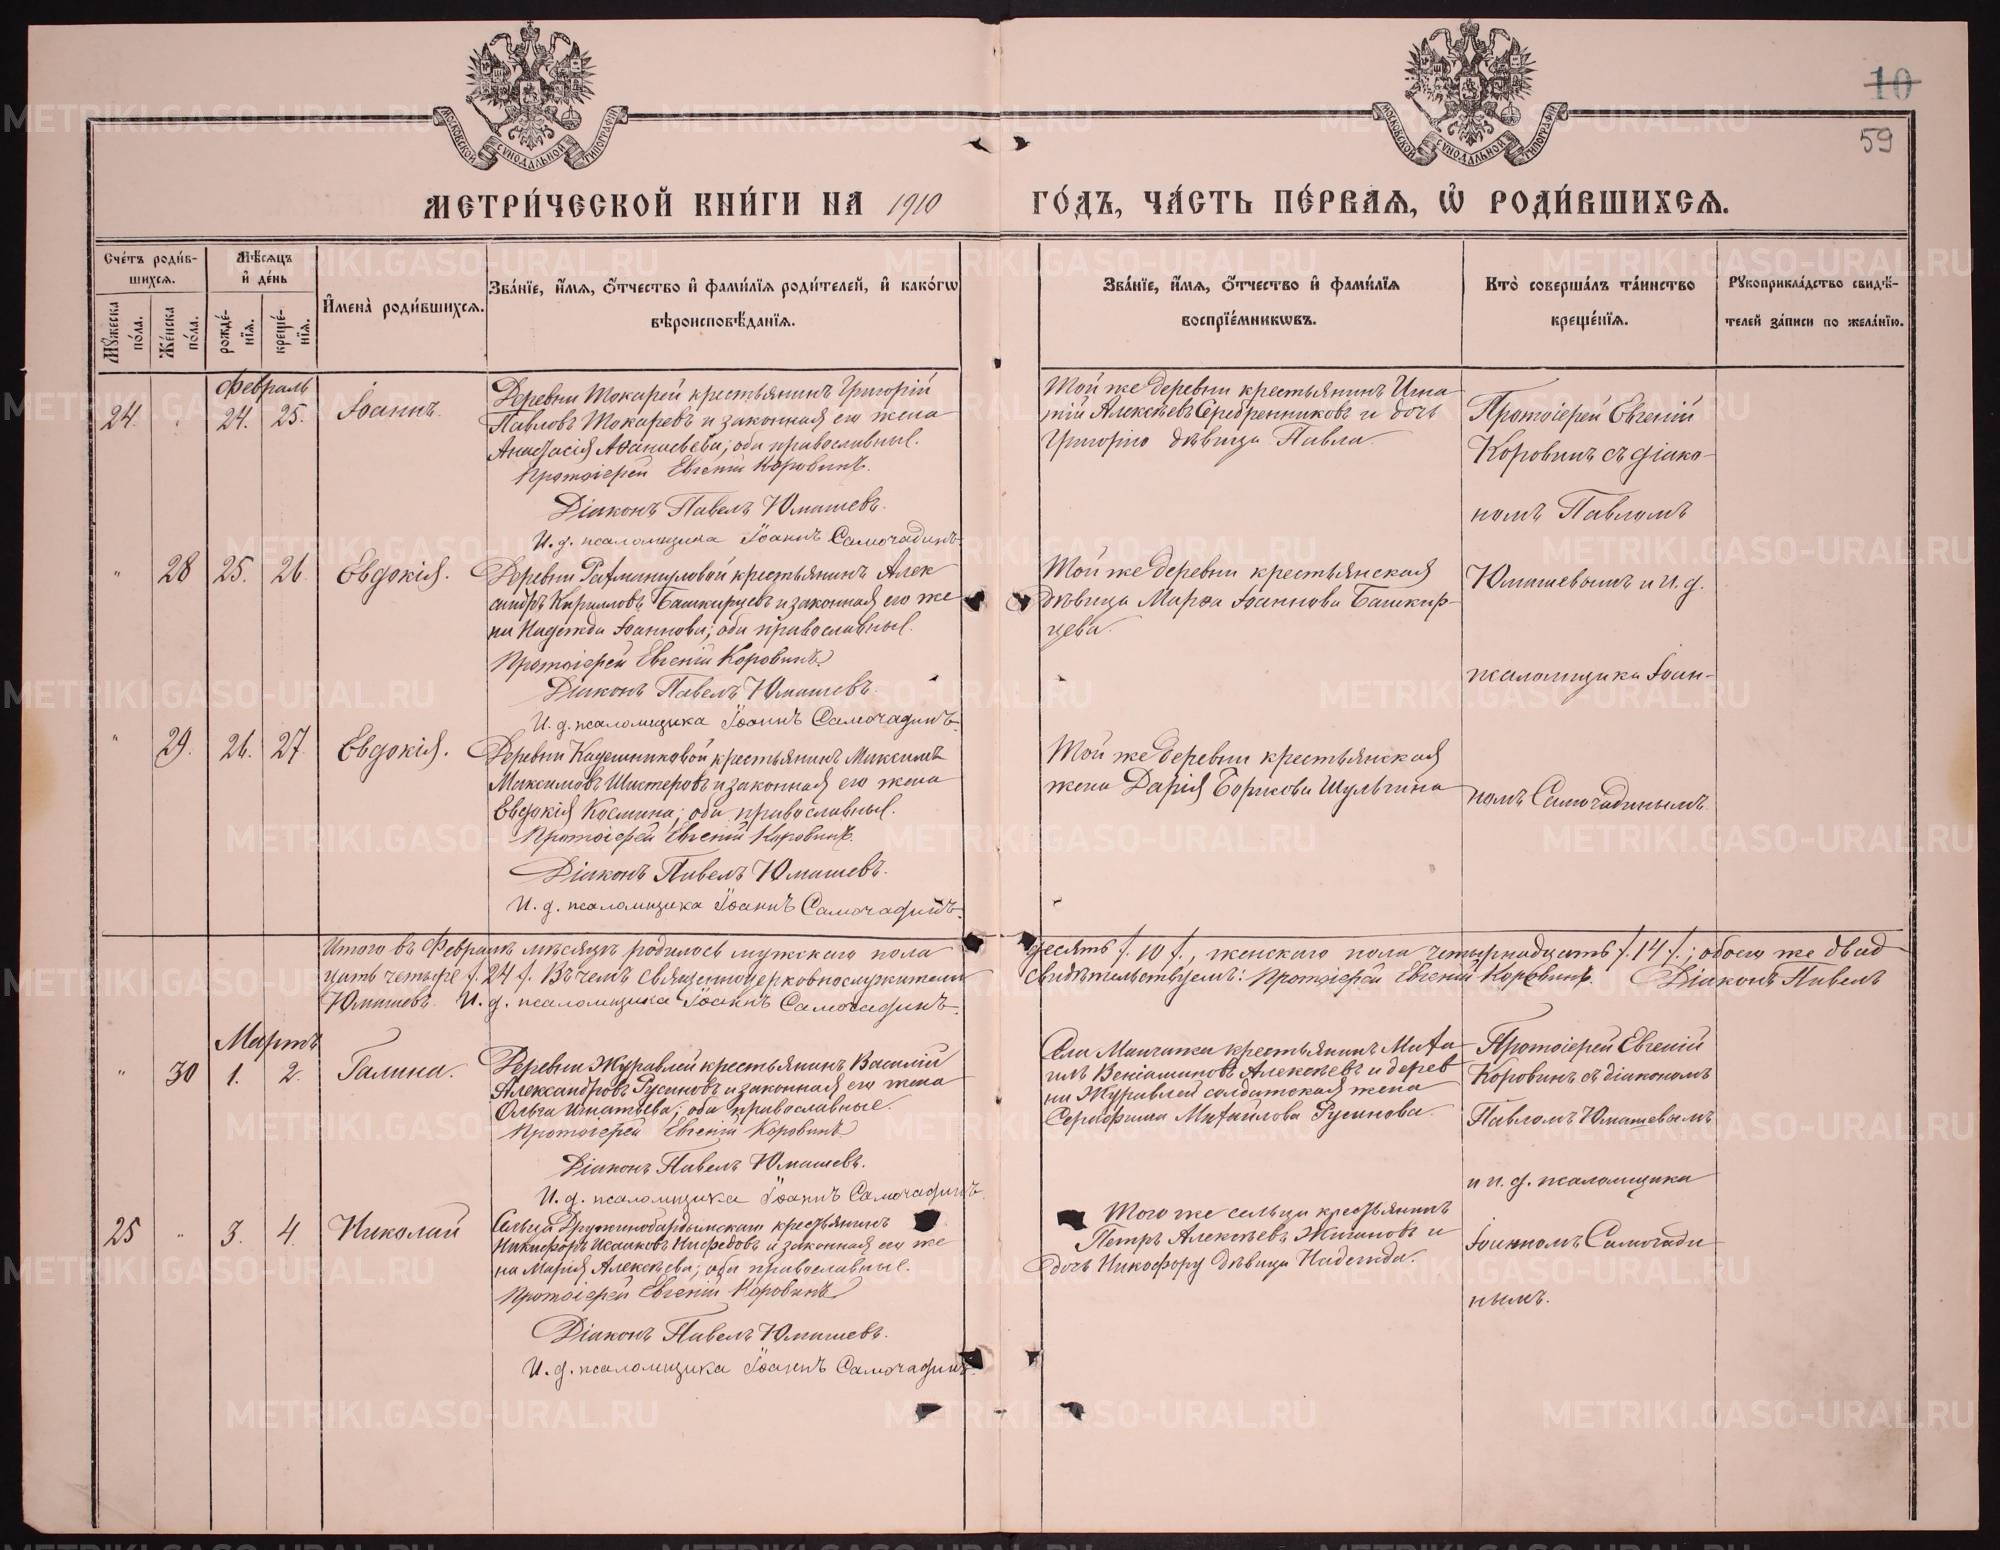 10
59
МОСКОВСКОЙ СѴНОДАЛЬНОЙ ТИПОГРАФІИ
МОСКОВСКОЙ СѴНОДАЛЬНОЙ ТИПОГРАФІИ
МЕТРИ́ЧЕСКОЙ КНИ́ГИ НА 1910 ГО́ДЪ, ЧА́СТЬ ПЕ́РВАѦ, Ѽ РОДИ́ВШИХСѦ.
Сче́тъ роди́в-
шихсѧ.
Мѹ́жеска
по́ла.
Же́нска
по́ла.
Мѣ́сѧцъ
и҆ де́нь
рожде́-
нїѧ.
креще́-
нїѧ.
И҆мена̀ роди́вшихсѧ.
Зва́нїе, и҆́мѧ, ѻ҆́тчество и҆ фами́лїѧ роди́телей, и҆ како́гѡ
вѣроисповѣ́данїѧ.
Зва́нїе, и҆́мѧ, ѻ҆́тчество и҆ фами́лїѧ
воспрїе́мникѡвъ.
Кто̀ соверша́лъ та́инство
креще́нїѧ.
Рѹкоприкла́дство свидѣ́-
телей за́писи по жела́нїю.
Февраль
24. " 24. 25. Іоаннъ.
Деревни Токарей крестьянинъ Григорій
Павловъ Токаревъ и законная его жена
Анастасія Аѳанасьева; оба православные.
Протоіерей Евгеній Коровинъ.
Діаконъ Павелъ Юмашевъ.
И. д. псаломщика Іоаннъ Самочадинъ.
Той же деревни крестьянинъ Игна
тій Алексѣевъ Серебренниковъ и дочь
Григорію дѣвица Павла.
Протоіерей Евгеній
Коровинъ съ діако-
номъ Павломъ
Юмашевымъ и и. д.
псаломщика Іоан-
номъ Самочадинымъ
" 28 25. 26. Евдокія.
Деревни Рахмангуловой крестьянинъ Алек
сандръ Кирилловъ Башкирцевъ и законная его же
на Надежда Іоаннова; оба православные.
Протоіерей Евгеній Коровинъ
Діаконъ Павелъ Юмашевъ.
И. д. псаломщика Іоаннъ Самочадинъ.
Той же деревни крестьянская
дѣвица Марѳа Іоаннова Башкир-
цева.
" 29. 26. 27. Евдокія.
Деревни Кадешниковой крестьянинъ Максимъ
Максимовъ Шистеровъ и законная его жена
Евдокія Космина; оба православные.
Протоіерей Евгеній Коровинъ.
Діаконъ Павелъ Юмашевъ.
И. д. псаломщика Іоаннъ Самочадинъ.
Той же деревни крестьянская
жена Дарія Борисова Шульгина
Итого въ Февралѣ мѣсяцѣ родилось мужскаго пола десять /. 10 /., женскаго пола четырнадцать /. 14 /.; обоего же двад
цать четыре /. 24 /. Въ чемъ священноцерковнослужители свидѣтельствуемъ: Протоіерей Евгеній Коровинъ. Діаконъ Павелъ
Юмашевъ. И. д. псаломщика Іоаннъ Самочадинъ.
Мартъ
" 30 1. 2. Галина.
Деревни Журавлей крестьянинъ Василій
Александровъ Русиновъ и законная его жена
Ольга Игнатьева; оба православные.
Протоіерей Евгеній Коровинъ
Діаконъ Павелъ Юмашевъ.
И. д. псаломщика Іоаннъ Самочадинъ.
Села Манчажа крестьянинъ Миха
илъ Веніаминовъ Алексѣевъ и дерев
ни Журавлей солдатская жена
Серафима Михайлова Русинова.
Протоіерей Евгеній
Коровинъ съ діакономъ
Павломъ Юмашевымъ
и и. д. псаломщика
Іоанномъ Самочади
нымъ.
25 " 3. 4. Николай
Сельца Дружинобардымскаго крестьянинъ
Никифоръ Исаковъ Нифедовъ и законная его же
на Марія Алексѣева; оба православные.
Протоіерей Евгеній Коровинъ
Діаконъ Павелъ Юмашевъ.
И. д. псаломщика Іоаннъ Самочадинъ.
Того же сельца крестьянинъ
Петръ Алексѣевъ Жигановъ и
дочь Никифору дѣвица Надежда.
METRIKI.GASO-URAL.RU